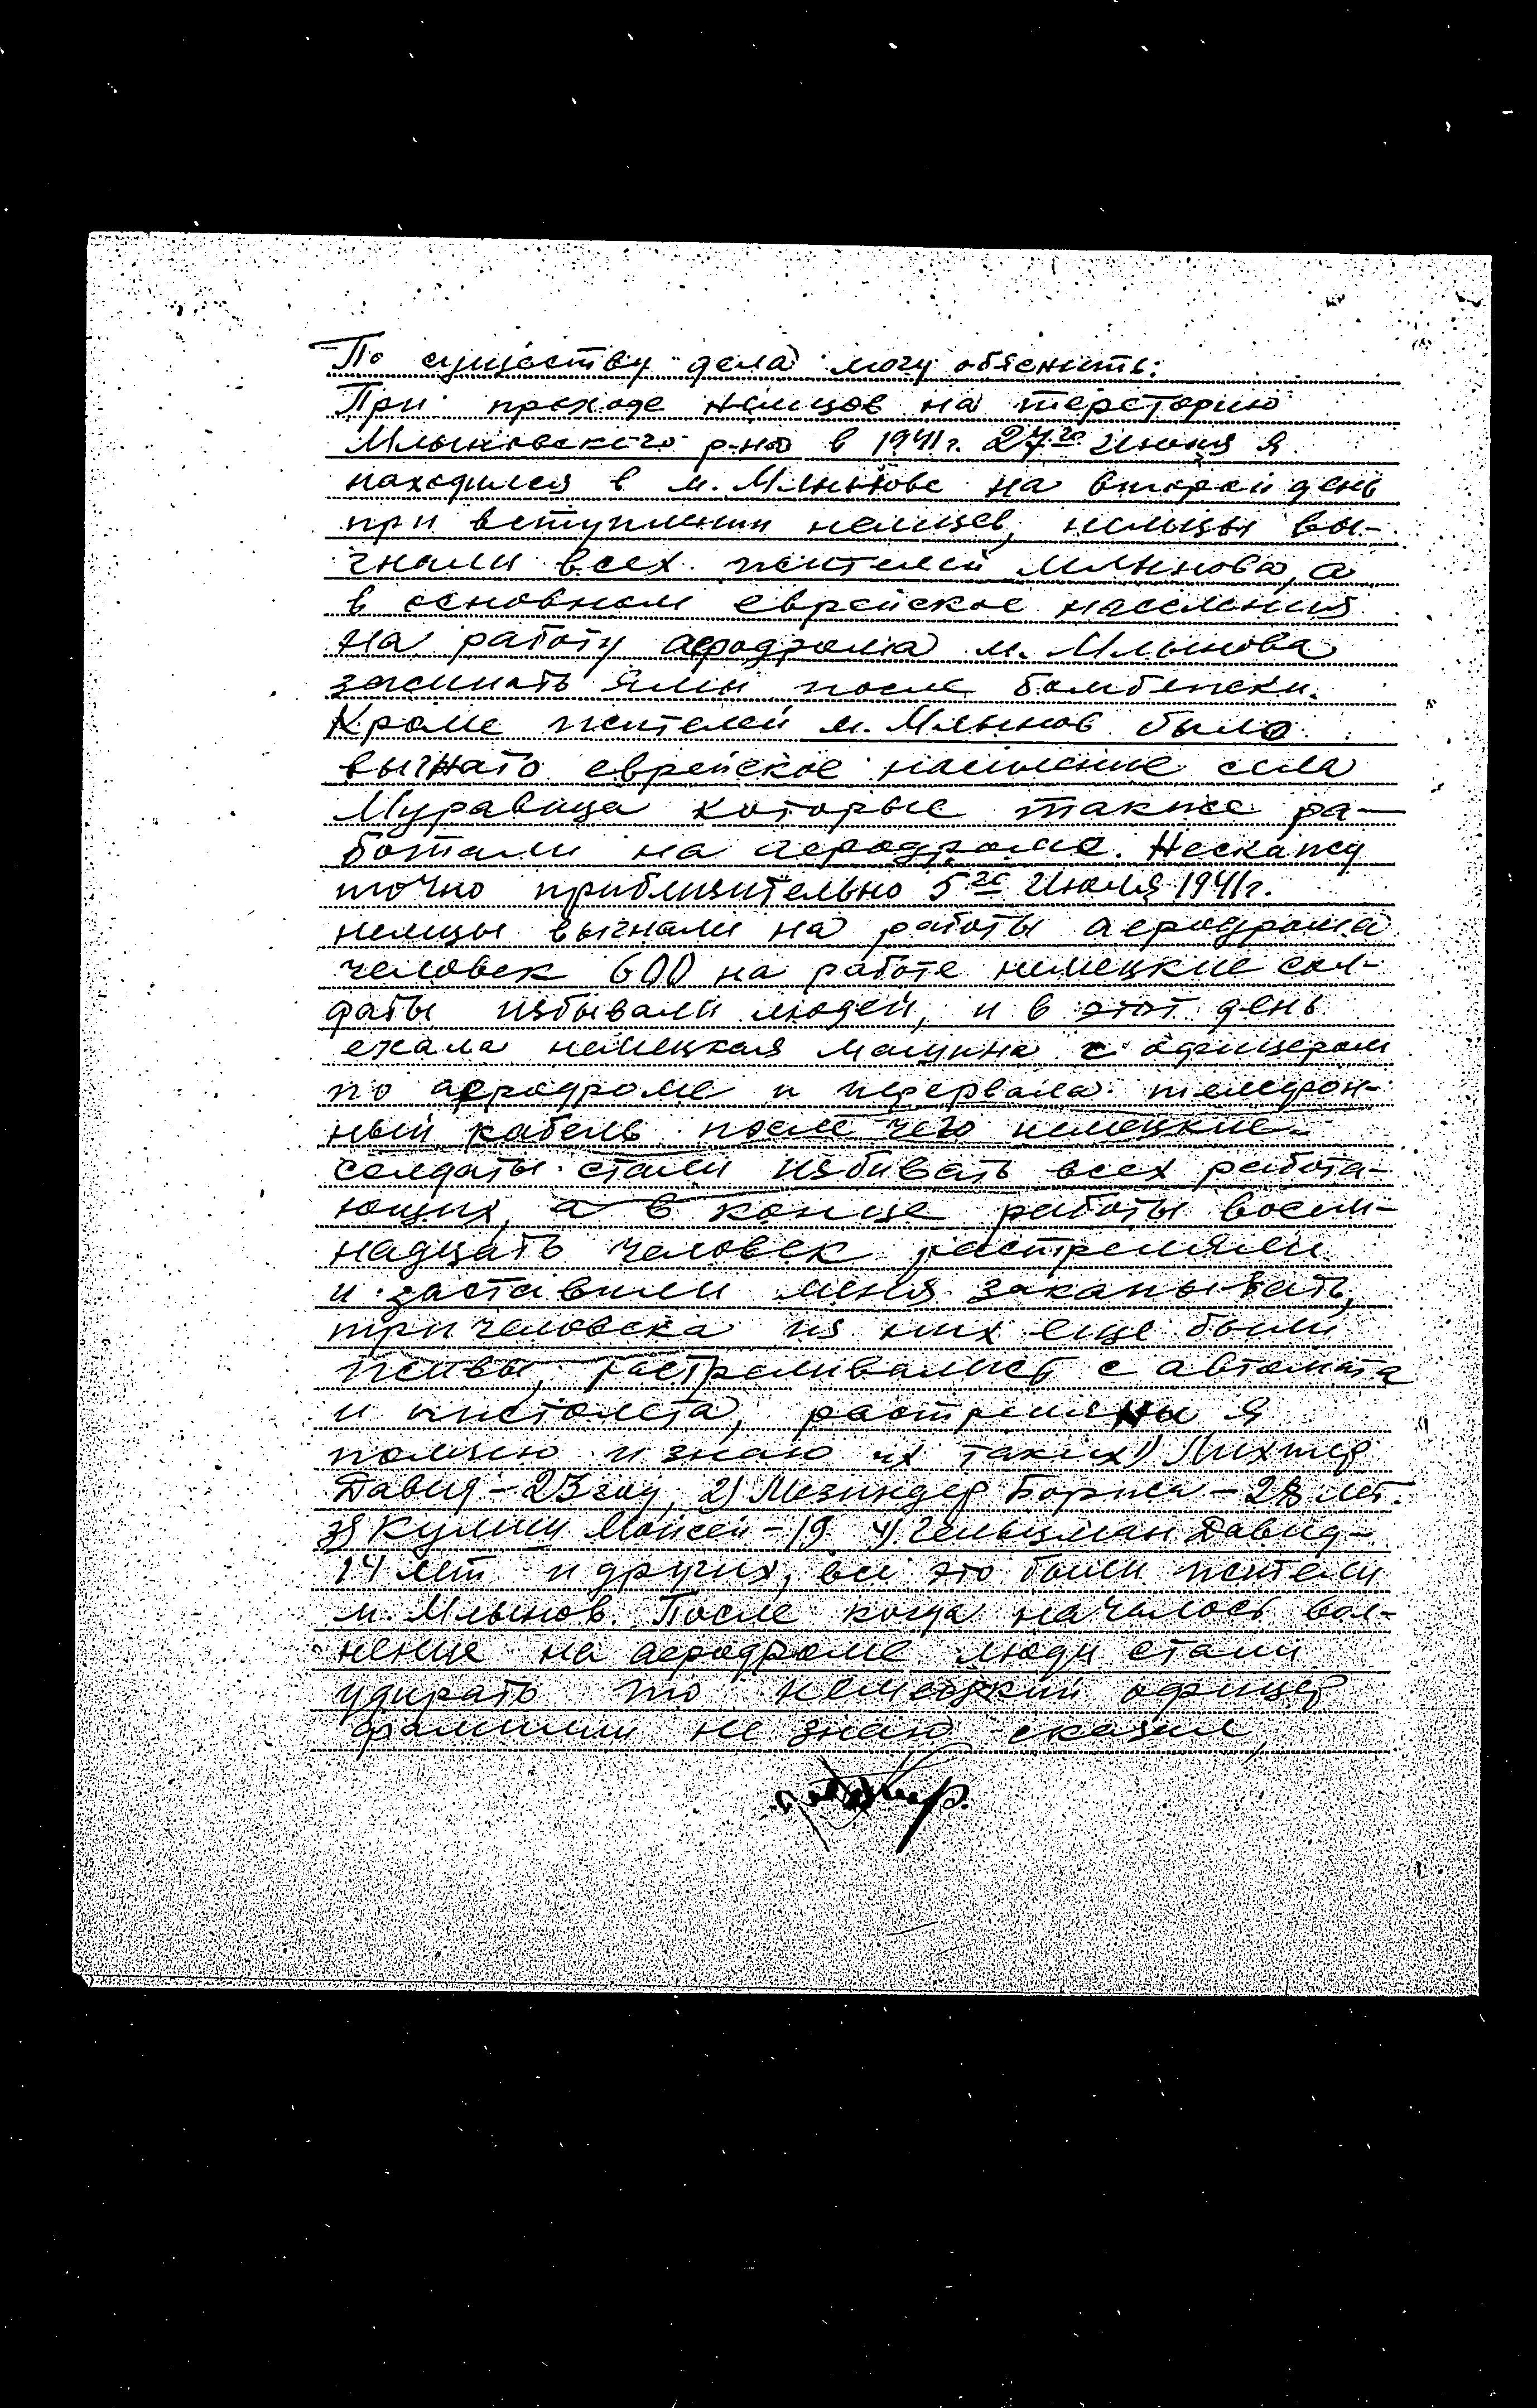 По существу дела могу обяснить:
При проходе немцов на терсторию
Млыновского р-на в 1941г. 27го июня я
находился в м. Млынове на второй день
при вступлении немцев, немцы вы-
гнали всех жителей Млынова, а
в основном еврейское населения
на работу аеродрома м. Млынова
засипать ямы после бомбежки.
Кроме жителей м. Млынов было
выгнато еврейское население села
Муравица которые также ра-
ботали на аеродроме. Нескажу
точно приблизительно 5го Июля 1941г.
немцы выгнали на работы аеродрома
человек 600 на работе немецкие сол-
даты избывали людей, и в этот день
ехала немецкая машина с офицером
по аеродроме и перервала телефон-
ный кабель после чего немецкие
солдаты стали избивать всех работа-
ющих, а в конце работы восем-
надцать человек растреляли
и заставили меня закапывать,
три человека из них еще были
живы, растреливались с автомата
и пистолета, растреляны я
помню и знаю их таких 1) Лихтер
Давид - 23 год, 2) Мезиндер Борис - 28 лет.
3) Кулиш Мойсей - 19 4) Гельцман Давид -
14 лет и других, все это были жители
м. Млынов. После когда началось вол-
нение на аеродроме люди стали
удирать то немецкий офицер
фамилии не знаю сказал,